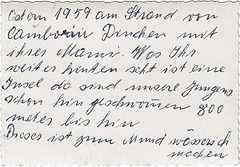 Ostern 1959 am Strand von
Camborin Drachen mit
ihrer Mami. Was Ihr
weiter hinten seht ist eine
Insel da sind unsere Jungens
schon hin geschwomen 800
meter bis hin
Dieses ist zum Mund wässerich
machen